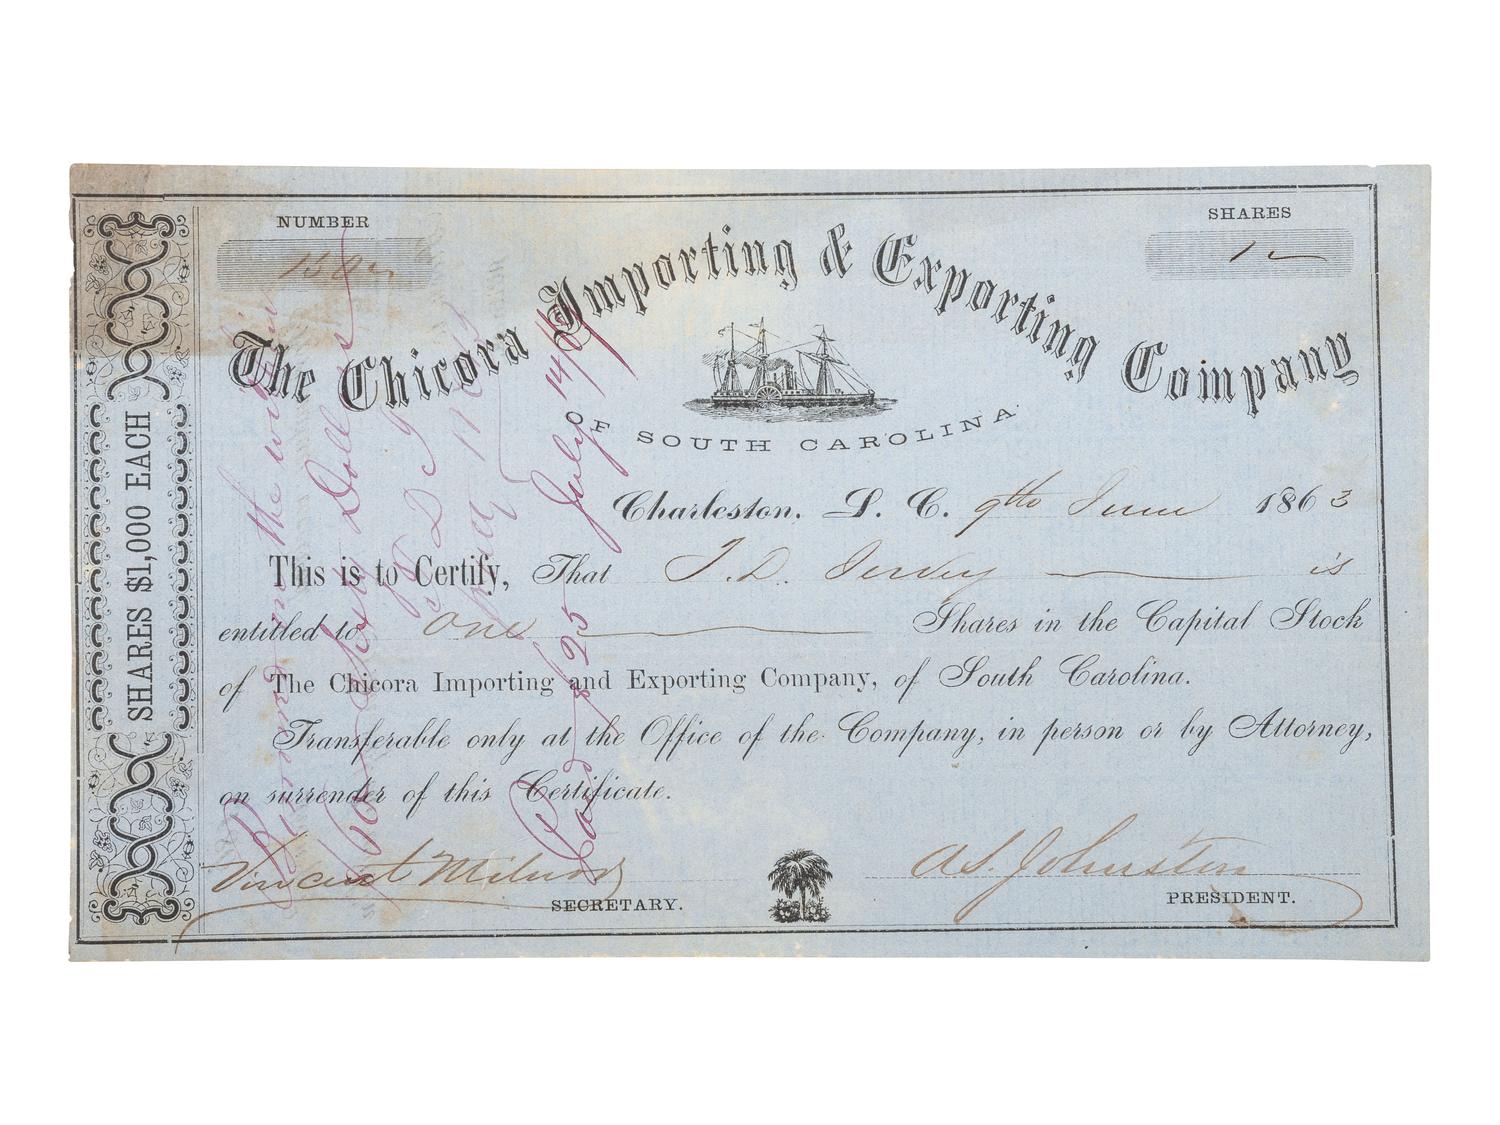 NUMBER
SHARES
The Chicora Importing & Exporting Company
OF SOUTH CAROLINA
Charleston, S. C. 9th June 1863
This is to Certify, That T. D. Jervey is
entitled to One Shares in the Capital Stock
of The Chicora Importing and Exporting Company, of South Carolina.
Transferable only at the Office of the Company, in person or by Attorney,
on surrender of this Certificate.
Vincent Milnor
SECRETARY.
A. S. Johnston
PRESIDENT.
SHARES $1,000 EACH
on the within
Sixty Dollars
Paid $25 July 14